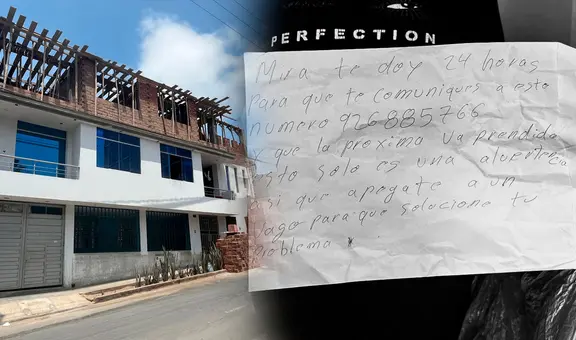 PERFECTION
Mira te doy 24 horas
para que te comuniques a esto
numero 926885766
x que la proxima va prendida
esto solo es una alvertecia
asi que apegate a un
pago para que solucione tu
problema